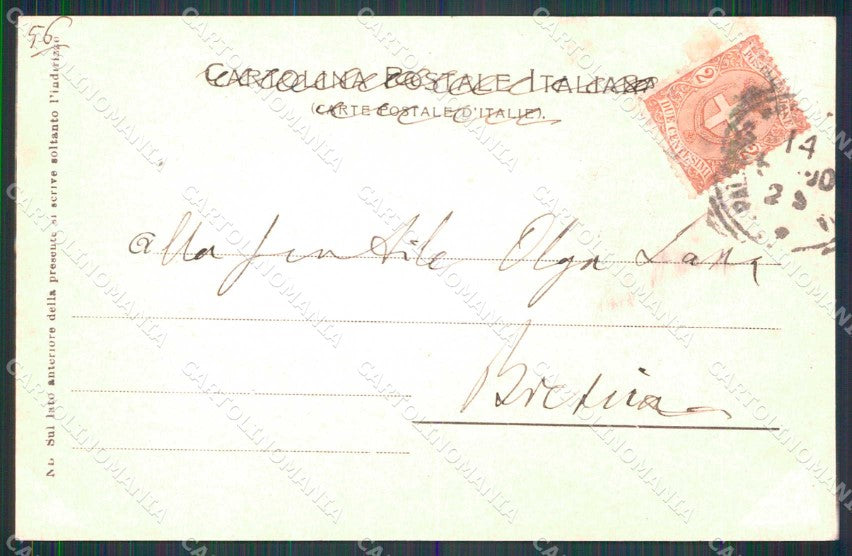 56
CARTOLINA POSTALE ITALIANA
(CARTE POSTALE D'ITALIE).
NB. Sul lato anteriore della presente si scrive soltanto l'indirizzo
2
DUE CENTESIMI
14
23
alla gentile Olga
CARTOLINOMANIA